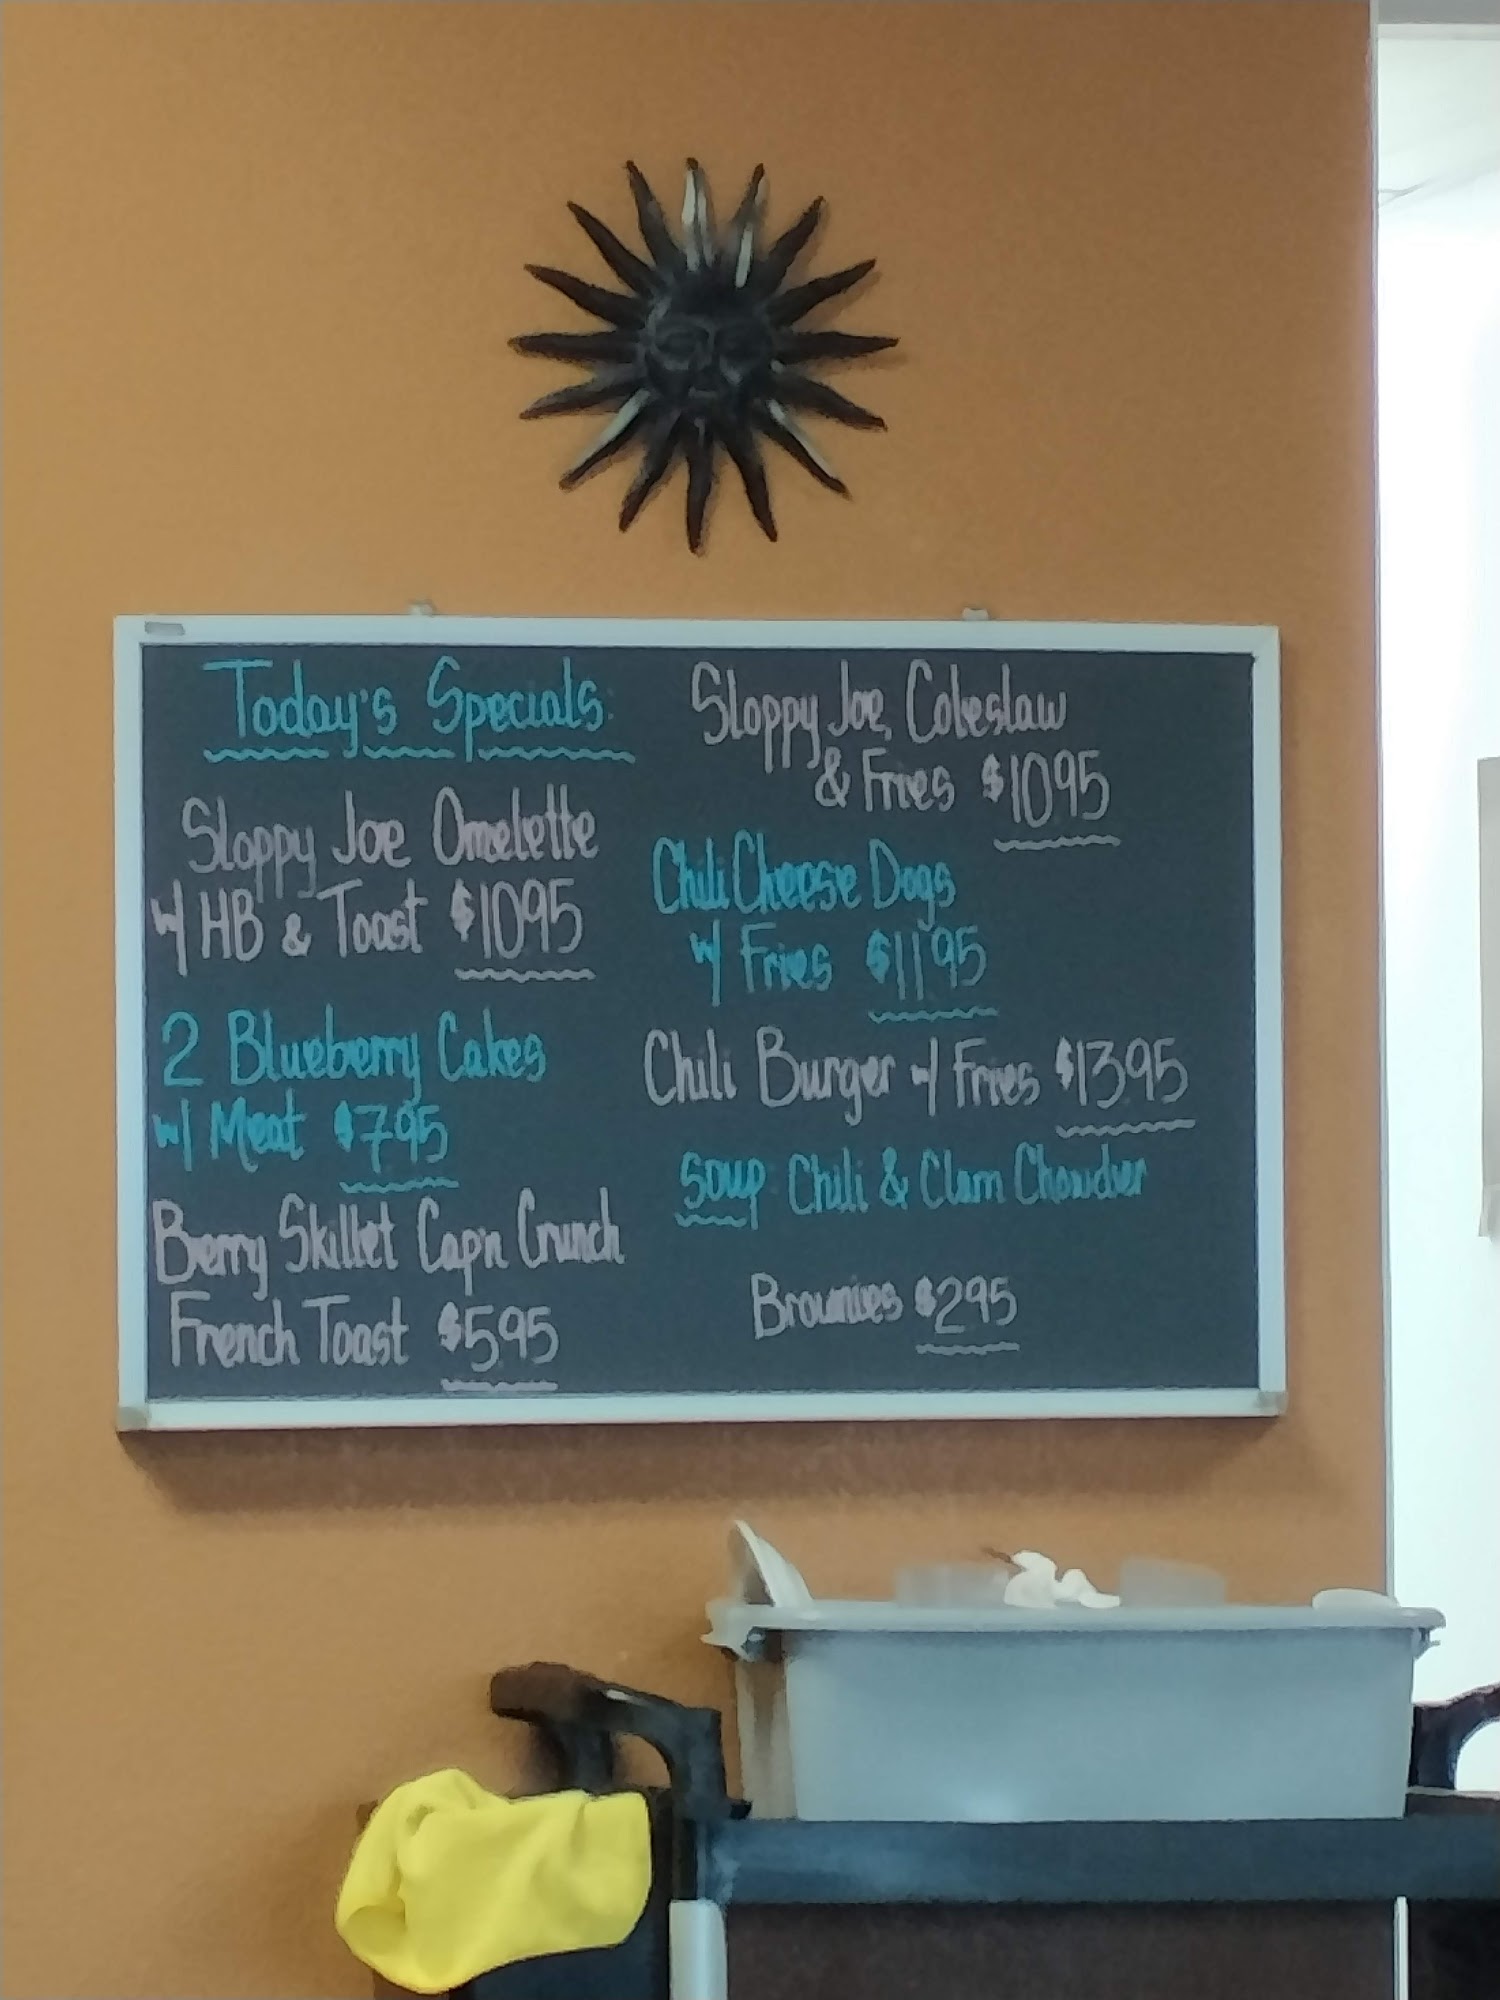 Today's Specials:
Sloppy Joe Omelette
w/ HB & Toast $10.95
2 Blueberry Cakes
w/ Meat $7.95
Berry Skillet Cap'n Crunch
French Toast $5.95
Sloppy Joe, Coleslaw
& Fries $10.95
Chili Cheese Dogs
w/ Fries $11.95
Chili Burger w/ Fries $13.95
Soup: Chili & Clam Chowder
Brownies $2.95